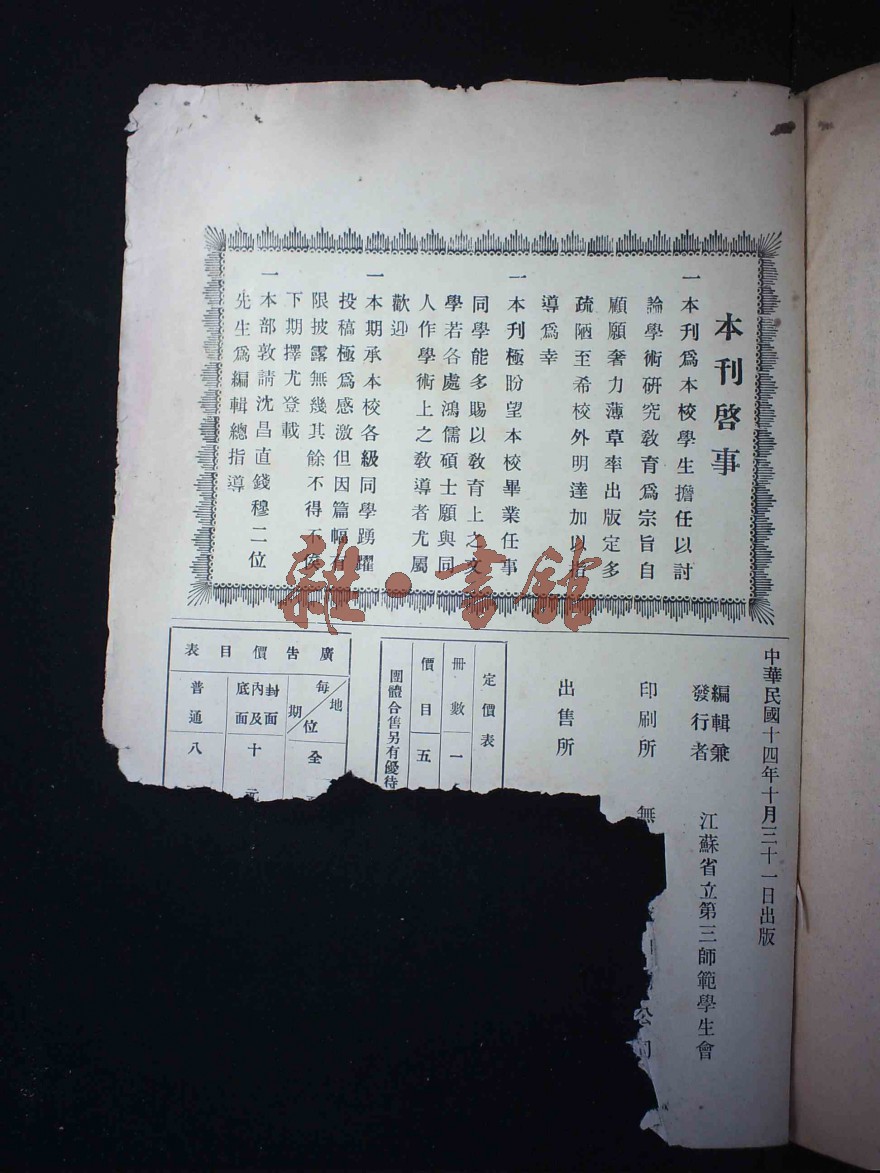 本刊啓事
一本刊爲本校學生擔任以討
論學術硏究敎育爲宗旨自
顧願奢力薄草率出版定多
疏陋至希校外明達加以指
導爲幸
一本刊極盼望本校畢業任事
同學能多賜以敎育上之文
學若各處鴻儒碩士願與同
人作學術上之敎導者尤屬
歡迎
一本期承本校各級同學踴躍
投稿極爲感激但因篇幅有
限披露無幾其餘不得不俟
下期擇尤登載
一本部敦請沈昌直錢穆二位
先生爲編輯總指導
中華民國十四年十月三十一日出版
編輯兼
發行者
江蘇省立第三師範學生會
印刷所 無
公司
出售所
定價表
冊數 一
價目 五
團體合售另有優待
廣告價目表
每期 地位 全
封面及內底面 十元
普通 八
雜·書館